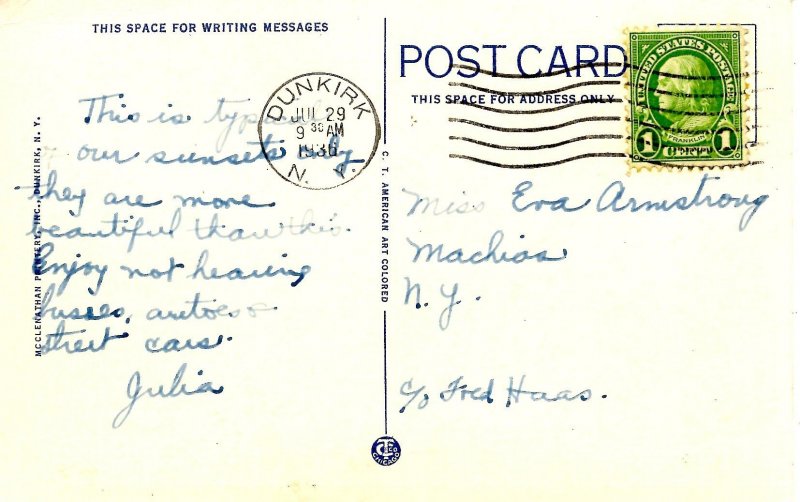 THIS SPACE FOR WRITING MESSAGES
This is
our sunsets only
they are more
beautiful than this.
Enjoy not hearing
busses, autoes &
street cars.
Julia
MCCLENATHAN PRINTERY, INC., DUNKIRK, N. Y.
C. T. AMERICAN ART COLORED
CTCO
CHICAGO
DUNKIRK
JUL 29
9 30 AM
1936
N. Y.
POST CARD
THIS SPACE FOR ADDRESS ONLY
UNITED STATES POSTAGE
FRANKLIN
1 1
Miss Eva Armstrong
Machias
N.Y.
c/o Fred Haas.